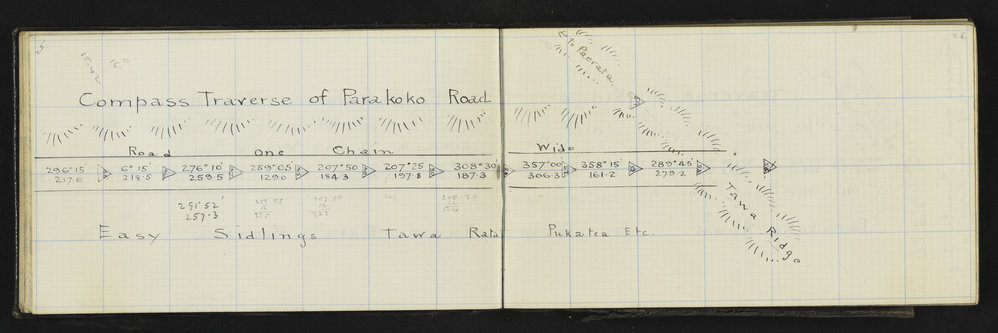 25.
15.42
Compass Traverse of Parakoko Road.
Road one Chain Wide
296°15' 6°15' 276°10' 259°05' 207°50' 207°25' 308°30' 357°00' 358°15' 289°45'
217.6 218.5 259.5 129.0 184.3 197.8 187.3 306.3 161.2 279.2
291°52'
257.3
Easy Sidlings Tawa Rata Pukatea Etc.
to Paerata
Tawa Ridge